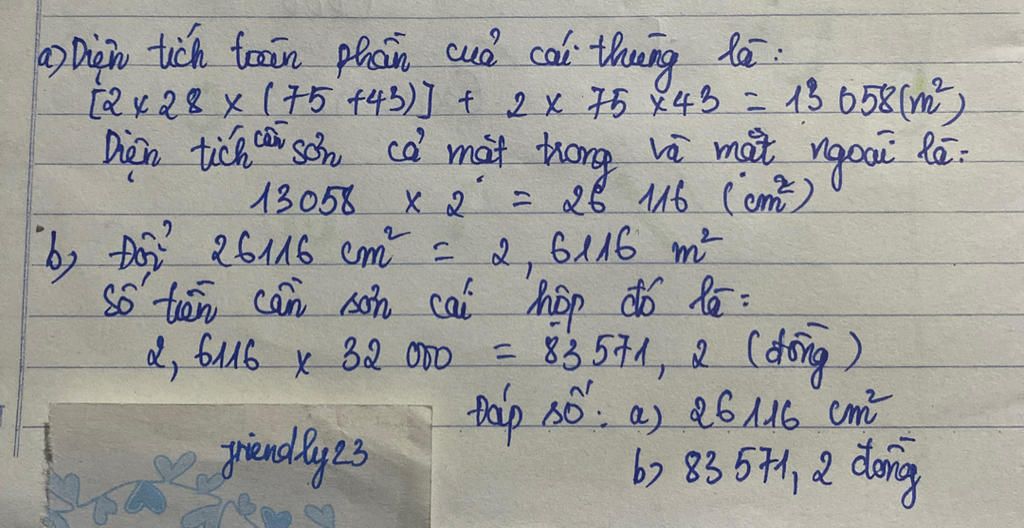 a) Diện tích toàn phần cuả cái thùng là:
[2 x 28 x (75 + 43)] + 2 x 75 x 43 = 13 058 (m²)
Diện tích cần sơn cả mặt trong và mặt ngoài là:
13058 x 2 = 26 116 (cm²)
b) Đổi 26116 cm² = 2,6116 m²
Số tiền cần sơn cái hộp đó là:
2,6116 x 32 000 = 83 571,2 (đồng)
Đáp số: a) 26116 cm²
b) 83 571,2 đồng
friendly23